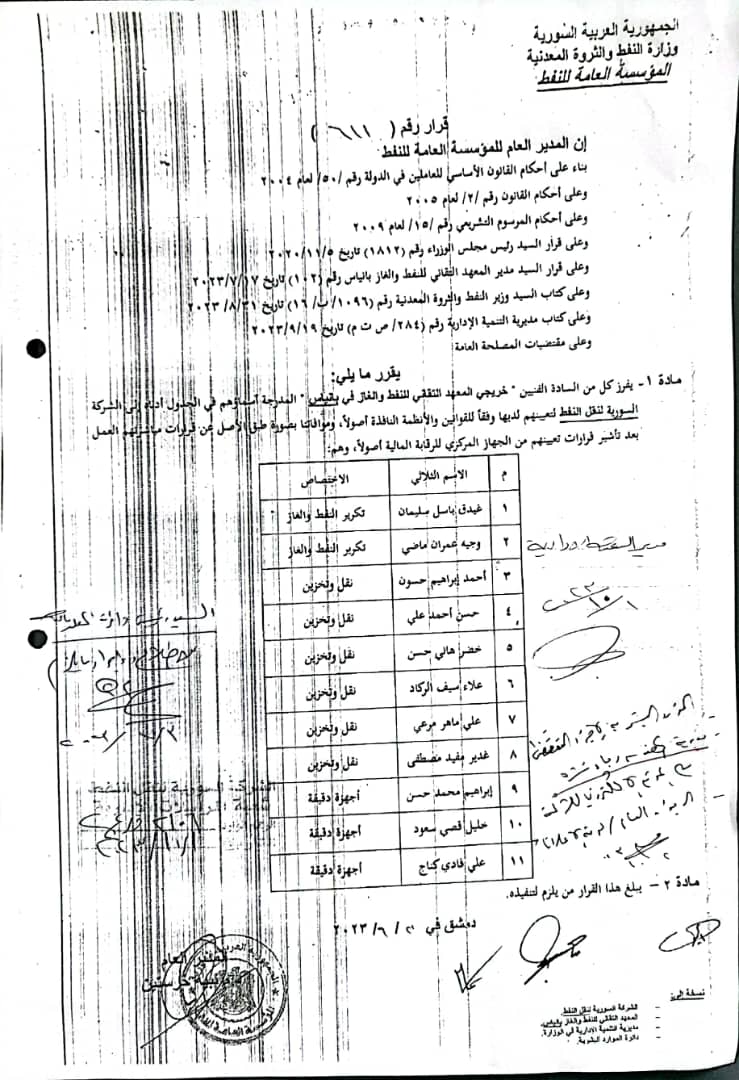 الجمهورية العربية السورية
وزارة النفط والثروة المعدنية
المؤسسة العامة للنفط
قرار رقم ( ٦١١ )
إن المدير العام للمؤسسة العامة للنفط
بناء على أحكام القانون الأساسي للعاملين في الدولة رقم /٥٠/ لعام ٢٠٠٤
وعلى أحكام القانون رقم /٢/ لعام ٢٠٠٥
وعلى أحكام المرسوم التشريعي رقم /١٥/ لعام ٢٠٠٩
وعلى قرار السيد رئيس مجلس الوزراء رقم (١٨١٢) تاريخ ٢٠٢٠/١١/٥
وعلى قرار السيد مدير المعهد التقاني للنفط والغاز بانياس رقم (١٠٢) تاريخ ٢٠٢٣/٧/١٧
وعلى كتاب السيد وزير النفط والثروة المعدنية رقم (١٠٩٦/ب/١٦) تاريخ ٢٠٢٣/٨/٣١
وعلى كتاب مديرية التنمية الإدارية رقم (٢٨٤/ ص ت م) تاريخ ٢٠٢٣/٩/١٩
وعلى مقتضيات المصلحة العامة
يقرر ما يلي:
مادة ١- يفرز كل من السادة الفنيين " خريجي المعهد التقاني للنفط والغاز في بانياس " المدرجة أسماؤهم في الجدول أدناه إلى الشركة
السورية لنقل النفط لتعيينهم لديها وفقاً للقوانين والأنظمة النافذة أصولاً، وموافاتنا بصورة طبق الأصل عن قرارات مباشرتهم العمل
بعد تأشير قرارات تعيينهم من الجهاز المركزي للرقابة المالية أصولاً، وهم:
م الاسم الثلاثي الاختصاص
١ غيدق باسل سليمان تكرير النفط والغاز
٢ وجيه عمران ماضي تكرير النفط والغاز
٣ أحمد إبراهيم حسون نقل وتخزين
٤ حسن أحمد علي نقل وتخزين
٥ خضر هاني حسن نقل وتخزين
٦ علاء سيف الركاد نقل وتخزين
٧ علي ماهر مرعي نقل وتخزين
٨ غدير مفيد مصطفى نقل وتخزين
٩ إبراهيم محمد حسن أجهزة دقيقة
١٠ خليل قصي سعود أجهزة دقيقة
١١ علي فادي كناج أجهزة دقيقة
مادة ٢- يبلغ هذا القرار من يلزم لتنفيذه.
دمشق في ٢٠ / ٩ / ٢٠٢٣
المدير العام
الشركة السورية لنقل النفط
نسخة إلى:
- الشركة السورية لنقل النفط
- المعهد التقاني للنفط والغاز بانياس.
- مديرية التنمية الإدارية في الوزارة.
- دائرة الموارد البشرية.